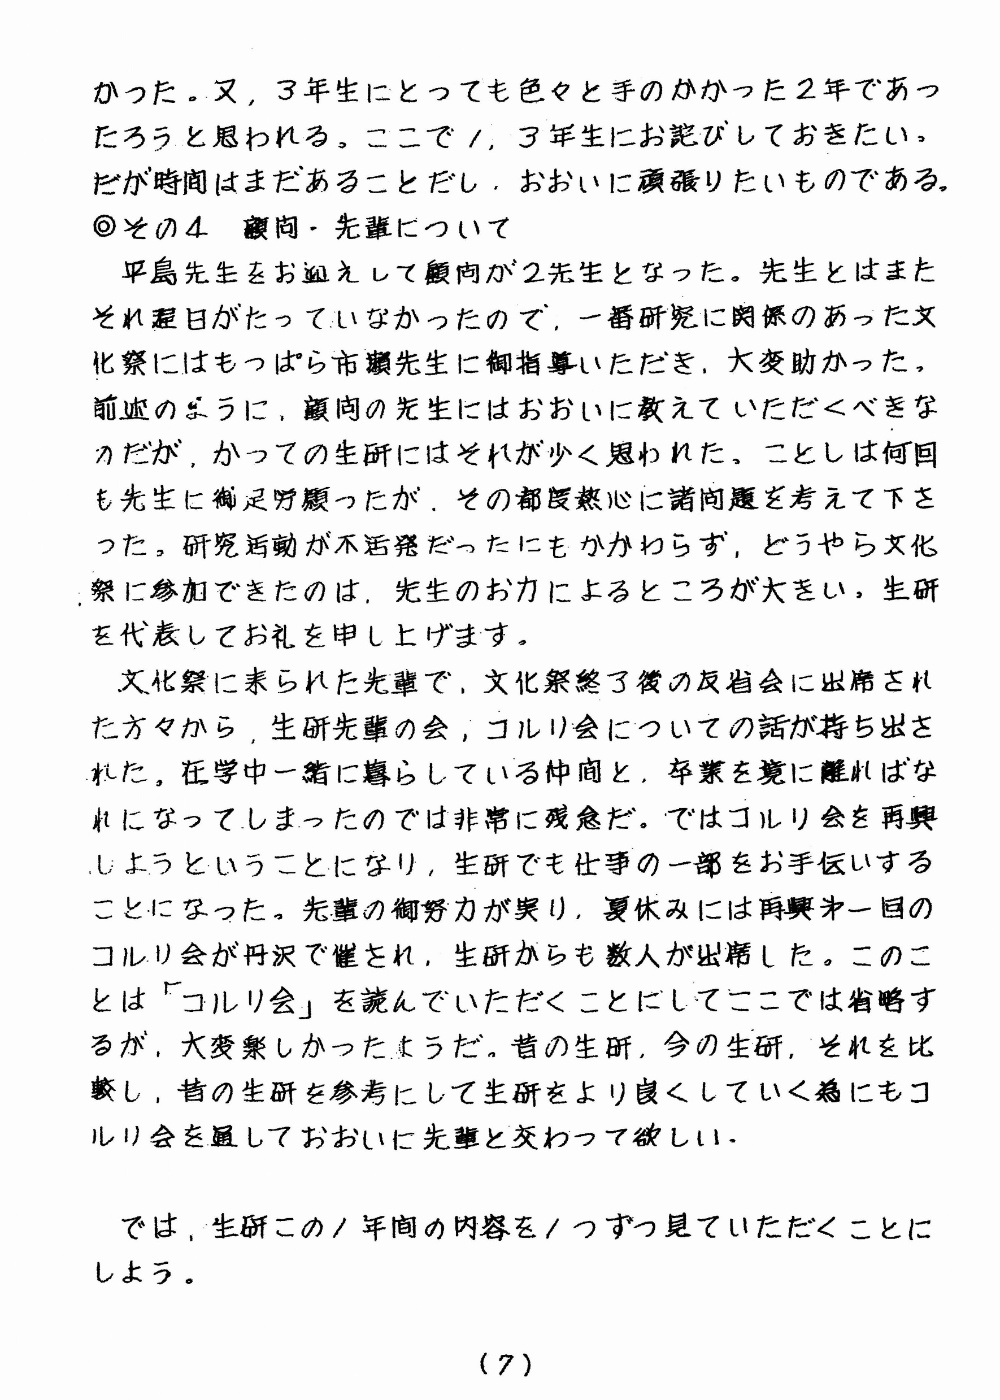 かった。又，３年生にとっても色々と手のかかった２年であっ
たろうと思われる。ここで１，３年生にお詫びしておきたい。
だが時間はまだあることだし，おおいに頑張りたいものである。
◎その４　顧問・先輩について
　平島先生をお迎えして顧問が２先生となった。先生とはまた
それ程日がたっていなかったので，一番研究に関係のあった文
化祭にはもっぱら市瀬先生に御指導いただき，大変助かった。
前述のように，顧問の先生にはおおいに教えていただくべきな
のだが，かっての生研にはそれが少く思われた。ことしは何回
も先生に御足労願ったが，その都度熱心に諸問題を考えて下さ
った。研究活動が不活発だったにもかかわらず，どうやら文化
祭に参加できたのは，先生のお力によるところが大きい。生研
を代表してお礼を申し上げます。
　文化祭に来られた先輩で，文化祭終了後の反省会に出席され
た方々から，生研先輩の会，コルリ会についての話が持ち出さ
れた。在学中一緒に暮らしている仲間と，卒業を境に離ればな
れになってしまったのでは非常に残念だ。ではコルリ会を再興
しようということになり，生研でも仕事の一部をお手伝いする
ことになった。先輩の御努力が実り，夏休みには再興第一回の
コルリ会が丹沢で催され，生研からも数人が出席した。このこ
とは「コルリ会」を読んでいただくことにしてここでは省略す
るが，大変楽しかったようだ。昔の生研，今の生研，それを比
較し，昔の生研を参考にして生研をより良くしていく為にもコ
ルリ会を通しておおいに先輩と交わって欲しい。
　では，生研この１年間の内容を１つずつ見ていただくことに
しよう。
(７)